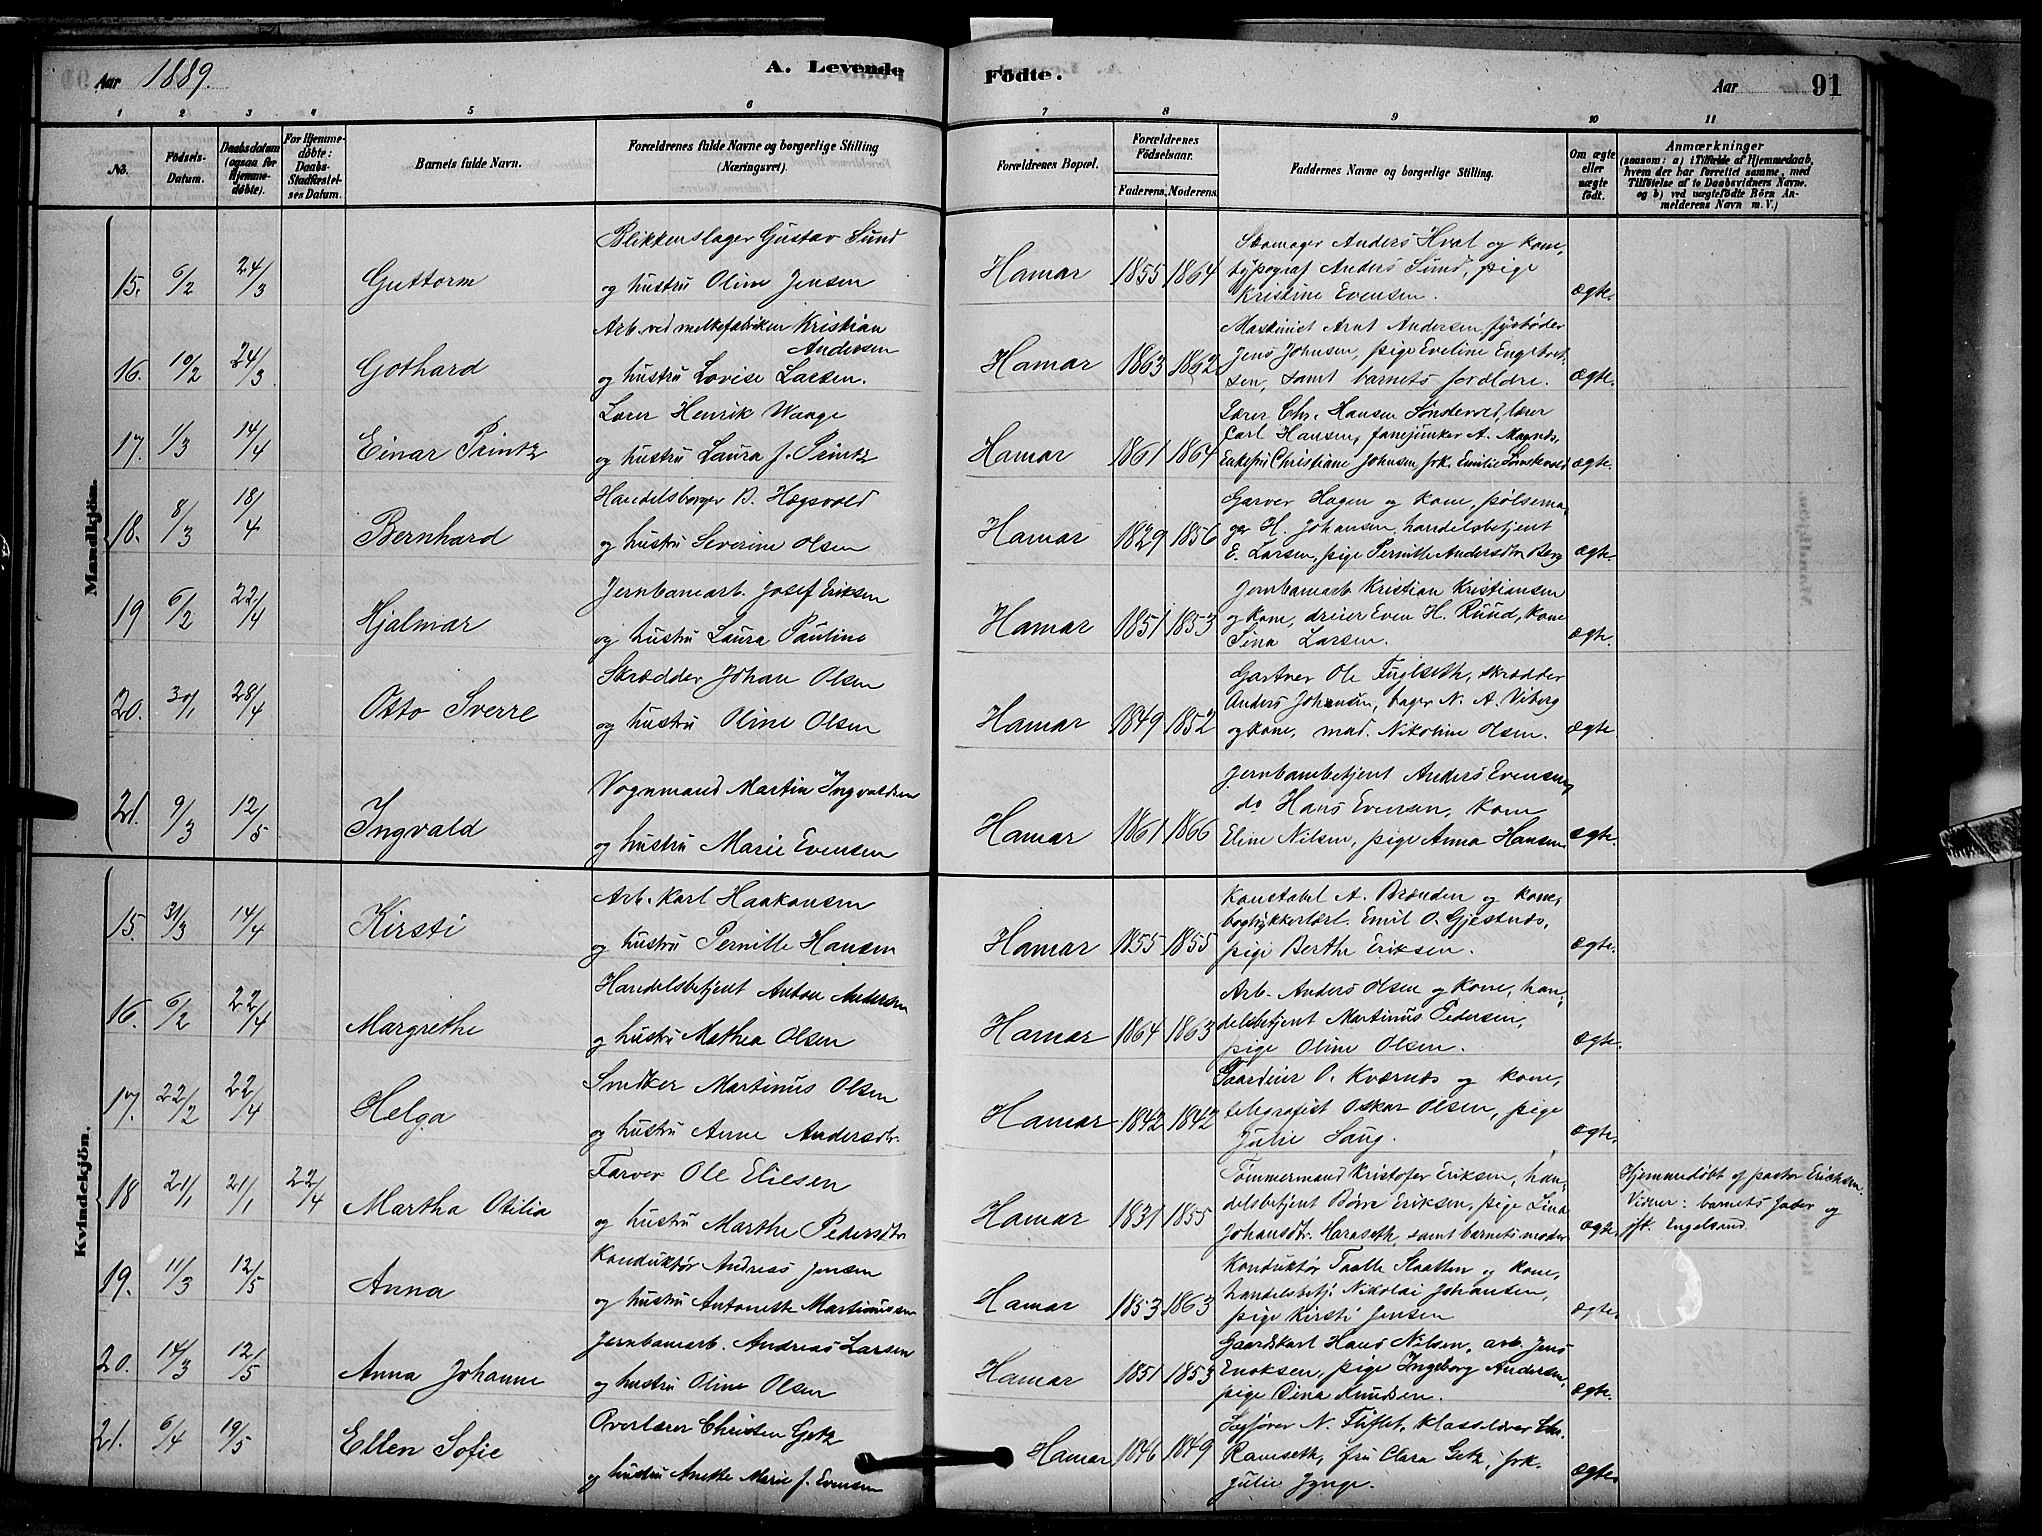 Aar 1889.
A. Levende Fødte.
Aar 91
1 2 3 4 5 6 7 8 9 10 11
No.
Fødsels-Datum.
Daabsdatum (ogsaa for Hjemmedøbte).
For Hjemmedøbte: Daabs-Stadfæstelses Datum.
Barnets fulde Navn.
Forældrenes fulde Navne og borgerlige Stilling (Næringsvei).
Forældrenes Bopæl.
Forældrenes Fødselsaar.
Faderens. Moderens.
Faddernes Navne og borgerlige Stilling.
Om ægte eller uægte født.
Anmærkninger
(saasom: a) i Tilfælde af Hjemmedaab,
hvem der har forrettet samme, med
Tilføielse af to Daabsvidners Navne.
og b) ved uægtefødte Børn An-
melderens Navn m. V.)
Mandkjön.
15. 6/2 24/3 Guttorm
Blikkenslager Gustav Sund
og hustru Oline Jensen
Hamar 1855 1864
Skomager Anders Hval og kone,
typograf Anders Sund, pige
Kristine Evensen.
ægte.
16. 10/2 24/3 Gothard
Arb. ved melkefabriken Kristian
Andersen
og hustru Lovise Larsen.
Hamar 1863 1862
Maskinist Arnt Andersen, fyrbøder
Jens Johnsen, pige Eveline Engebret-
sen, samt barnets forældre.
ægte.
17. 1/3 14/4 Einar Printz
Lærer Henrik Waage
og hustru Laura f. Printz
Hamar 1861 1864
Lærer Chr. Hansen Sønderved, lærer
Carl Hansen, fanejunker A. Magnæs,
Enkefru Christiane Johnsen, frk. Emilie
ægte.
18. 8/3 18/4 Bernhard
Handelsborger B. Hægsvold
og hustru Severine Olsen
Hamar 1829 1856
Garver Hagen og kone, pølsema-
ger H. Johansen, handelsbetjent
E. Larsen, pige Pernille Andersdtr Berg
ægte.
19 6/2 22/4 Hjalmar
Jernbanearb. Josef Eriksen
og hustru Laura Pauline
Hamar 1851 1853
Jernbanearb Kristian Kristiansen
og kone, dreier Even H. Ruud, kone
Sina Larsen.
ægte.
20. 30/1 28/4 Otto Sverre
Skrædder Johan Olsen
og hustru Oline Olsen
Hamar 1849 1852
Gartner Ole Fuglseth, skrædder
Anders Johansen, bager N. A. Viberg
og kone, mad. Nikoline Olsen.
ægte.
21. 9/3 12/5 Ingvald
Vognmand Martin Ingvaldsen
og hustru Marie Evensen
Hamar 1861 1866
Jernbanebetjent Anders Evensen,
do Hans Evensen, kone
Eline Nilsen, pige Anna Hansen
ægte.
Kvindekjön.
15. 31/3 14/4 Kirsti
Arb. Karl Haakonsen
og hustru Pernille Hansen
Hamar 1855 1855
Konstabel A. Brænden og kone,
bogtykkerlærl. Emil O. Gjestnæs,
pige Berthe Eriksen.
ægte.
16. 6/2 22/4 Margrethe
Handelsbetjent Anton Andersen
og hustru Mathea Olsen
Hamar 1864 1863
Arb. Anders Olsen og kone, han-
delsbetjent Martinus Pedersen,
pige Oline Olsen.
ægte.
17. 22/2 22/4 Helga
Snedker Martinus Olsen
og hustru Anne Andersdtr.
Hamar 1842 1842
Gaardeier O. Kværnæs og kone,
telegrafist Oskar Olsen, pige
Julie Saug.
ægte.
18 21/1 21/1 22/4 Martha Otilia
Farver Ole Eliesen
og hustru Marthe Pedersdtr
Hamar 1831 1855
Tømmermand Kristofer Eriksen, han-
delsbetjent Børre Eriksen, pige Lina
Johansdtr. Haraseth, samt barnets moder
ægte.
Hjemmedøbt af pastor Erichsen.
Vidner: barnets fader og
frk. Engelsrud.
19. 11/3 12/5 Anna
Konduktør Andreas Jensen
og hustru Antonette Martinussen
Hamar 1853 1863
Konduktør Taalle Slaatten og kone,
handelsbetj. Nikolai Johansen,
pige Kirsti Jensen
ægte.
20. 14/3 12/5 Anna Johanne
Jernbanearb. Andreas Larsen
og hustru Oline Olsen
Hamar 1851 1853
Gaardskarl Hans Nilsen, arb. Jens
Enoksen, pige Ingeborg Andersen,
pige Dina Knudsen.
ægte.
21. 6/4 19/5 Ellen Sofie
Overlærer Christen Getz
og hustru Anette Marie f. Evensen
Hamar 1846 1849
Sagfører N. Fliflet, klasselærer Chr.
Ramseth, fru Clara Getz, frk.
Julie Jynge.
ægte.